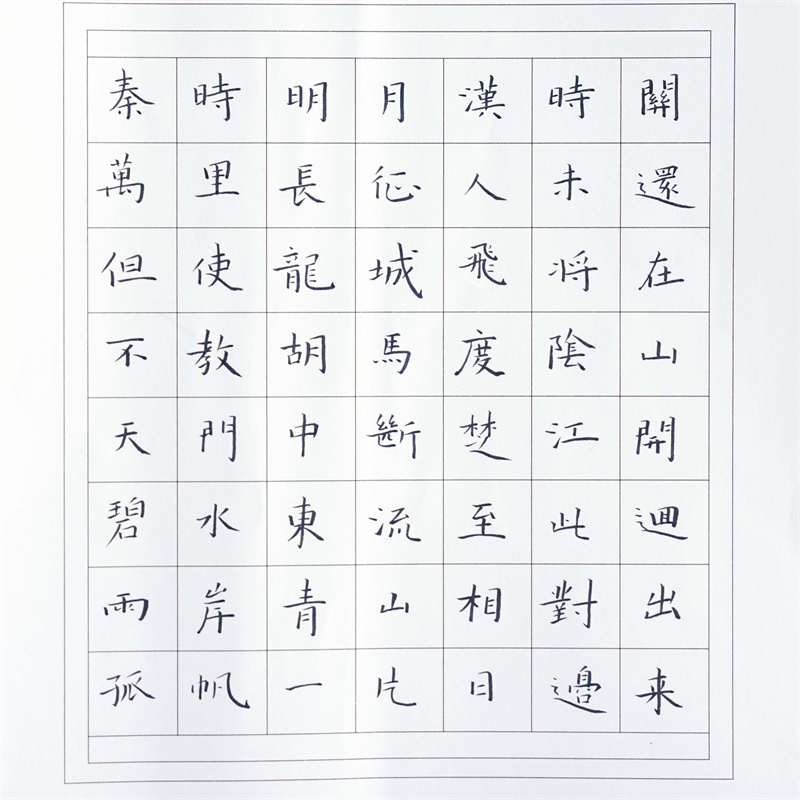 秦時明月漢時關
萬里長征人未還
但使龍城飛将在
不教胡馬度陰山
天門中斷楚江開
碧水東流至此迴
兩岸青山相對出
孤帆一片日邊来